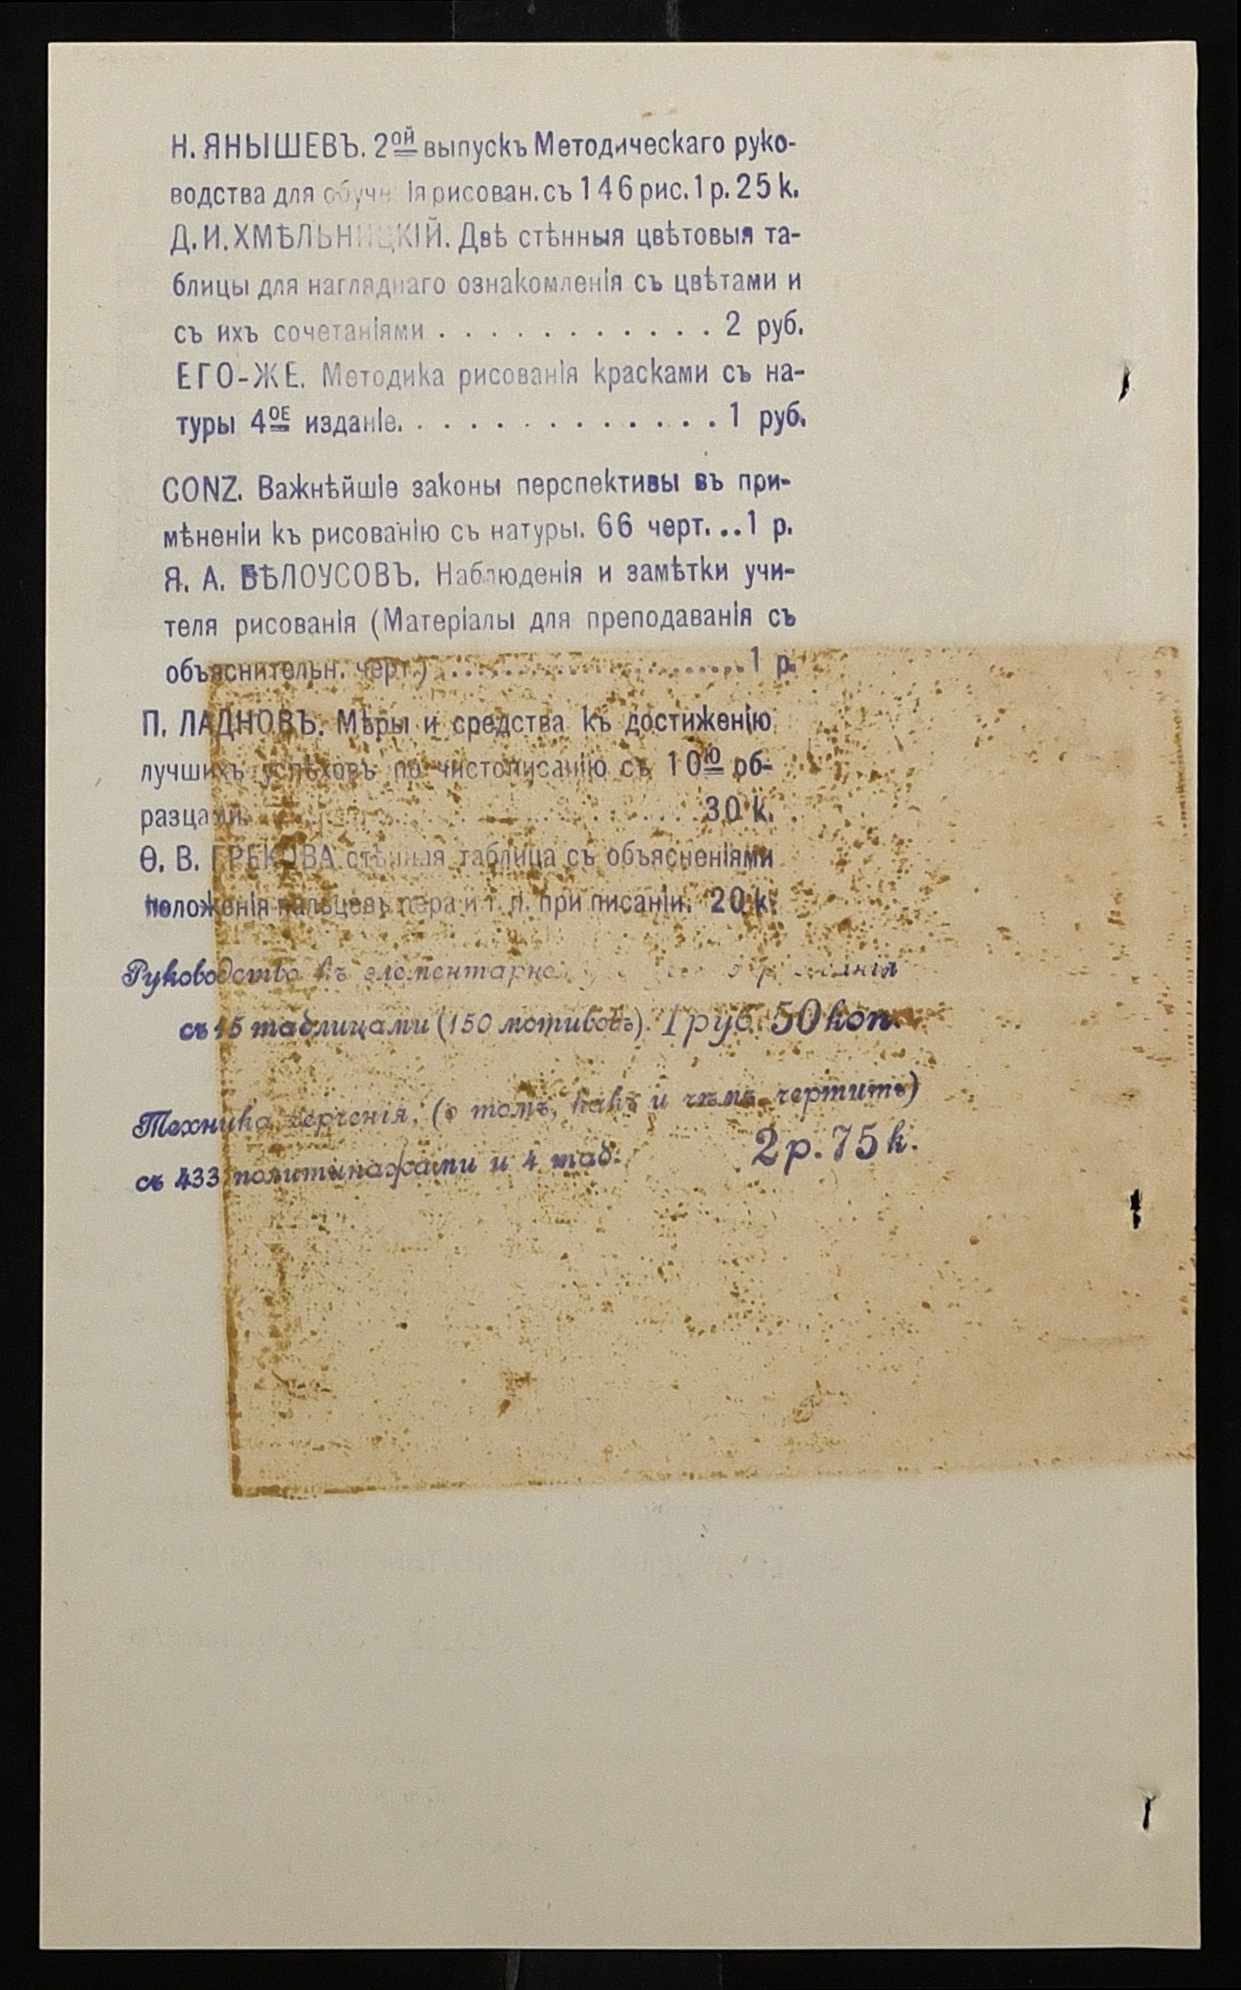 Н. ЯНЫШЕВЪ. 2ой выпускъ Методическаго руко-
водства для рисован. съ 146 рис. 1 р. 25 к.
Д. И. ХМѢЛЬНИЦКІЙ. Двѣ стѣнныя цвѣтовыя та-
блицы для нагляднаго ознакомленія съ цвѣтами и
съ ихъ сочетаніями . . . . . . . . . . . 2 руб.
ЕГО-ЖЕ. Методика рисованія красками съ на-
туры 4ОЕ изданіе. . . . . . . . . . . . . 1 руб.
CONZ. Важнѣйшіе законы перспективы въ при-
мѣненіи къ рисованію съ натуры. 66 черт. . . 1 р.
Я. А. БѢЛОУСОВЪ. Наблюденія и замѣтки учи-
теля рисованія (Матеріалы для преподаванія съ
объяснительн. черт.) . . . . . . . . . . . . . . . . . . 1 р.
П. ЛАДНОВЪ. Мѣры и средства къ достиженію
лучшихъ успѣховъ по чистописанію съ 10Ю об-
разцами. . . . . . . . . . . . . . . . . . 30 к.
Ѳ. В. ГРЕКОВА стѣнная таблица съ объясненіями
положенія пальцевъ, пера и т. п. при писаніи. 20 к.
Руководство къ
съ 15 таблицами (150 мотивовъ). 1 руб. 50 коп.
Техника черченія, (о томъ, какъ и чѣмъ чертить)
съ 433 политипажами и 4 таб. 2 р. 75 к.